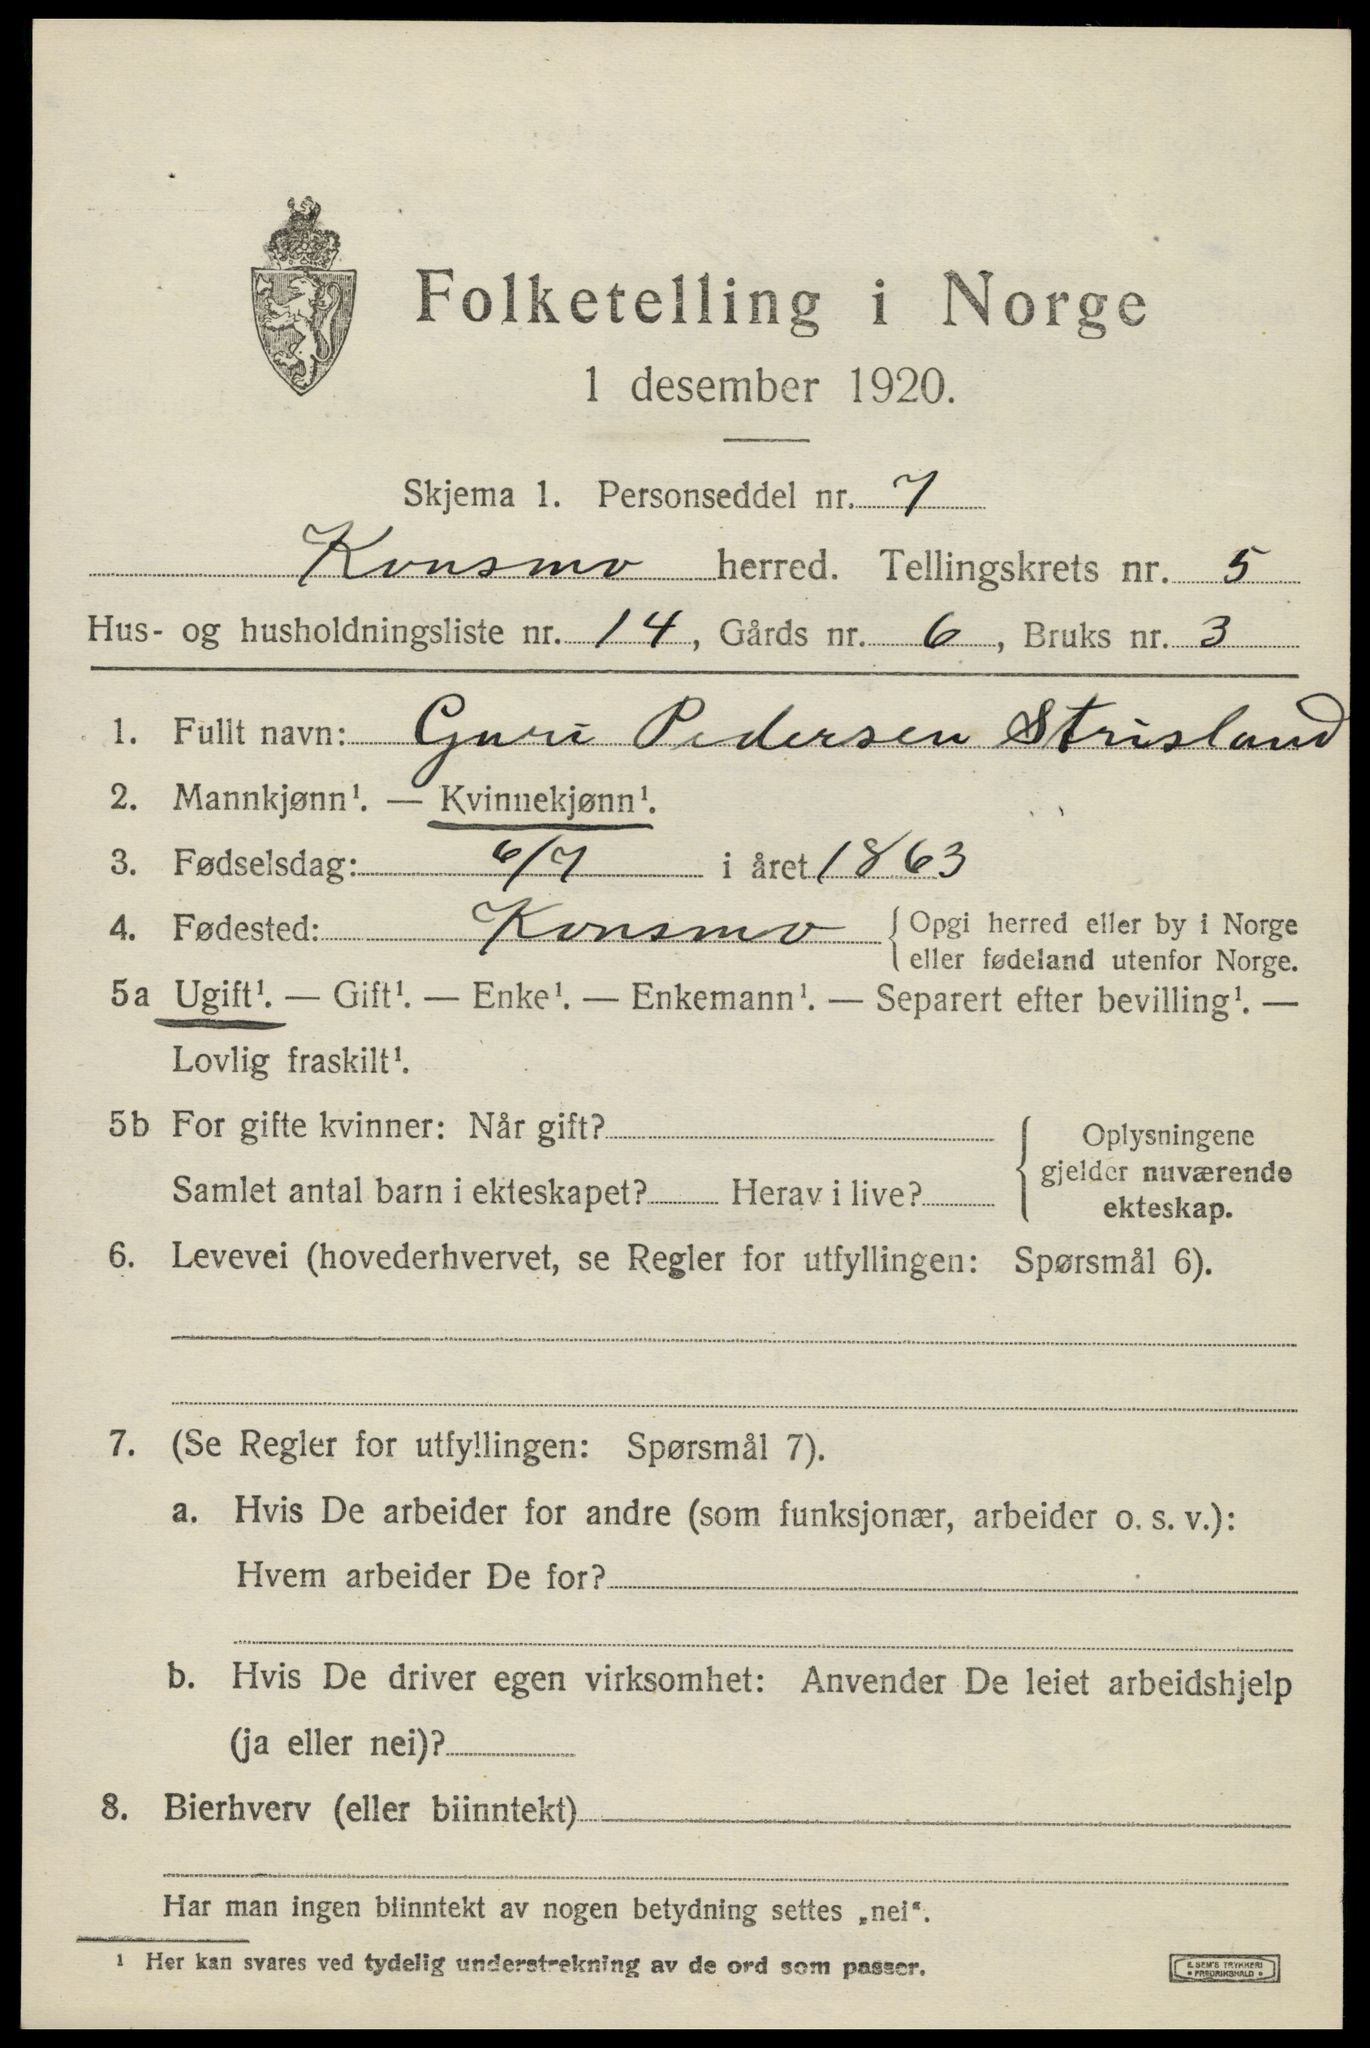 Folketelling i Norge
1 desember 1920.
Skjema 1. Personseddel nr. 7
Konsmo herred. Tellingskrets nr. 5
Hus- og husholdningsliste nr. 14, Gårds nr. 6, Bruks nr. 3
1. Fullt navn: Guri Pedersen Strisland
2. Mannkjønn¹. — Kvinnekjønn¹.
3. Fødselsdag: 6/7 i året 1863
4. Fødested: Konsmo { Opgi herred eller by i Norge
eller fødeland utenfor Norge.
5a Ugift¹. — Gift¹. — Enke¹. — Enkemann¹. — Separert efter bevilling¹. —
Lovlig fraskilt¹.
5b For gifte kvinner: Når gift?
Samlet antal barn i ekteskapet? Herav i live?
{ Oplysningene
gjelder nuværende
ekteskap.
6. Levevei (hovederhvervet, se Regler for utfyllingen: Spørsmål 6).
7. (Se Regler for utfyllingen: Spørsmål 7).
a. Hvis De arbeider for andre (som funksjonær, arbeider o. s. v.):
Hvem arbeider De for?
b. Hvis De driver egen virksomhet: Anvender De leiet arbeidshjelp
(ja eller nei)?
8. Bierhverv (eller biinntekt)
Har man ingen biinntekt av nogen betydning settes „nei“.
¹ Her kan svares ved tydelig understrekning av de ord som passer.
E. SEM'S TRYKKERI
FREDRIKSHALD